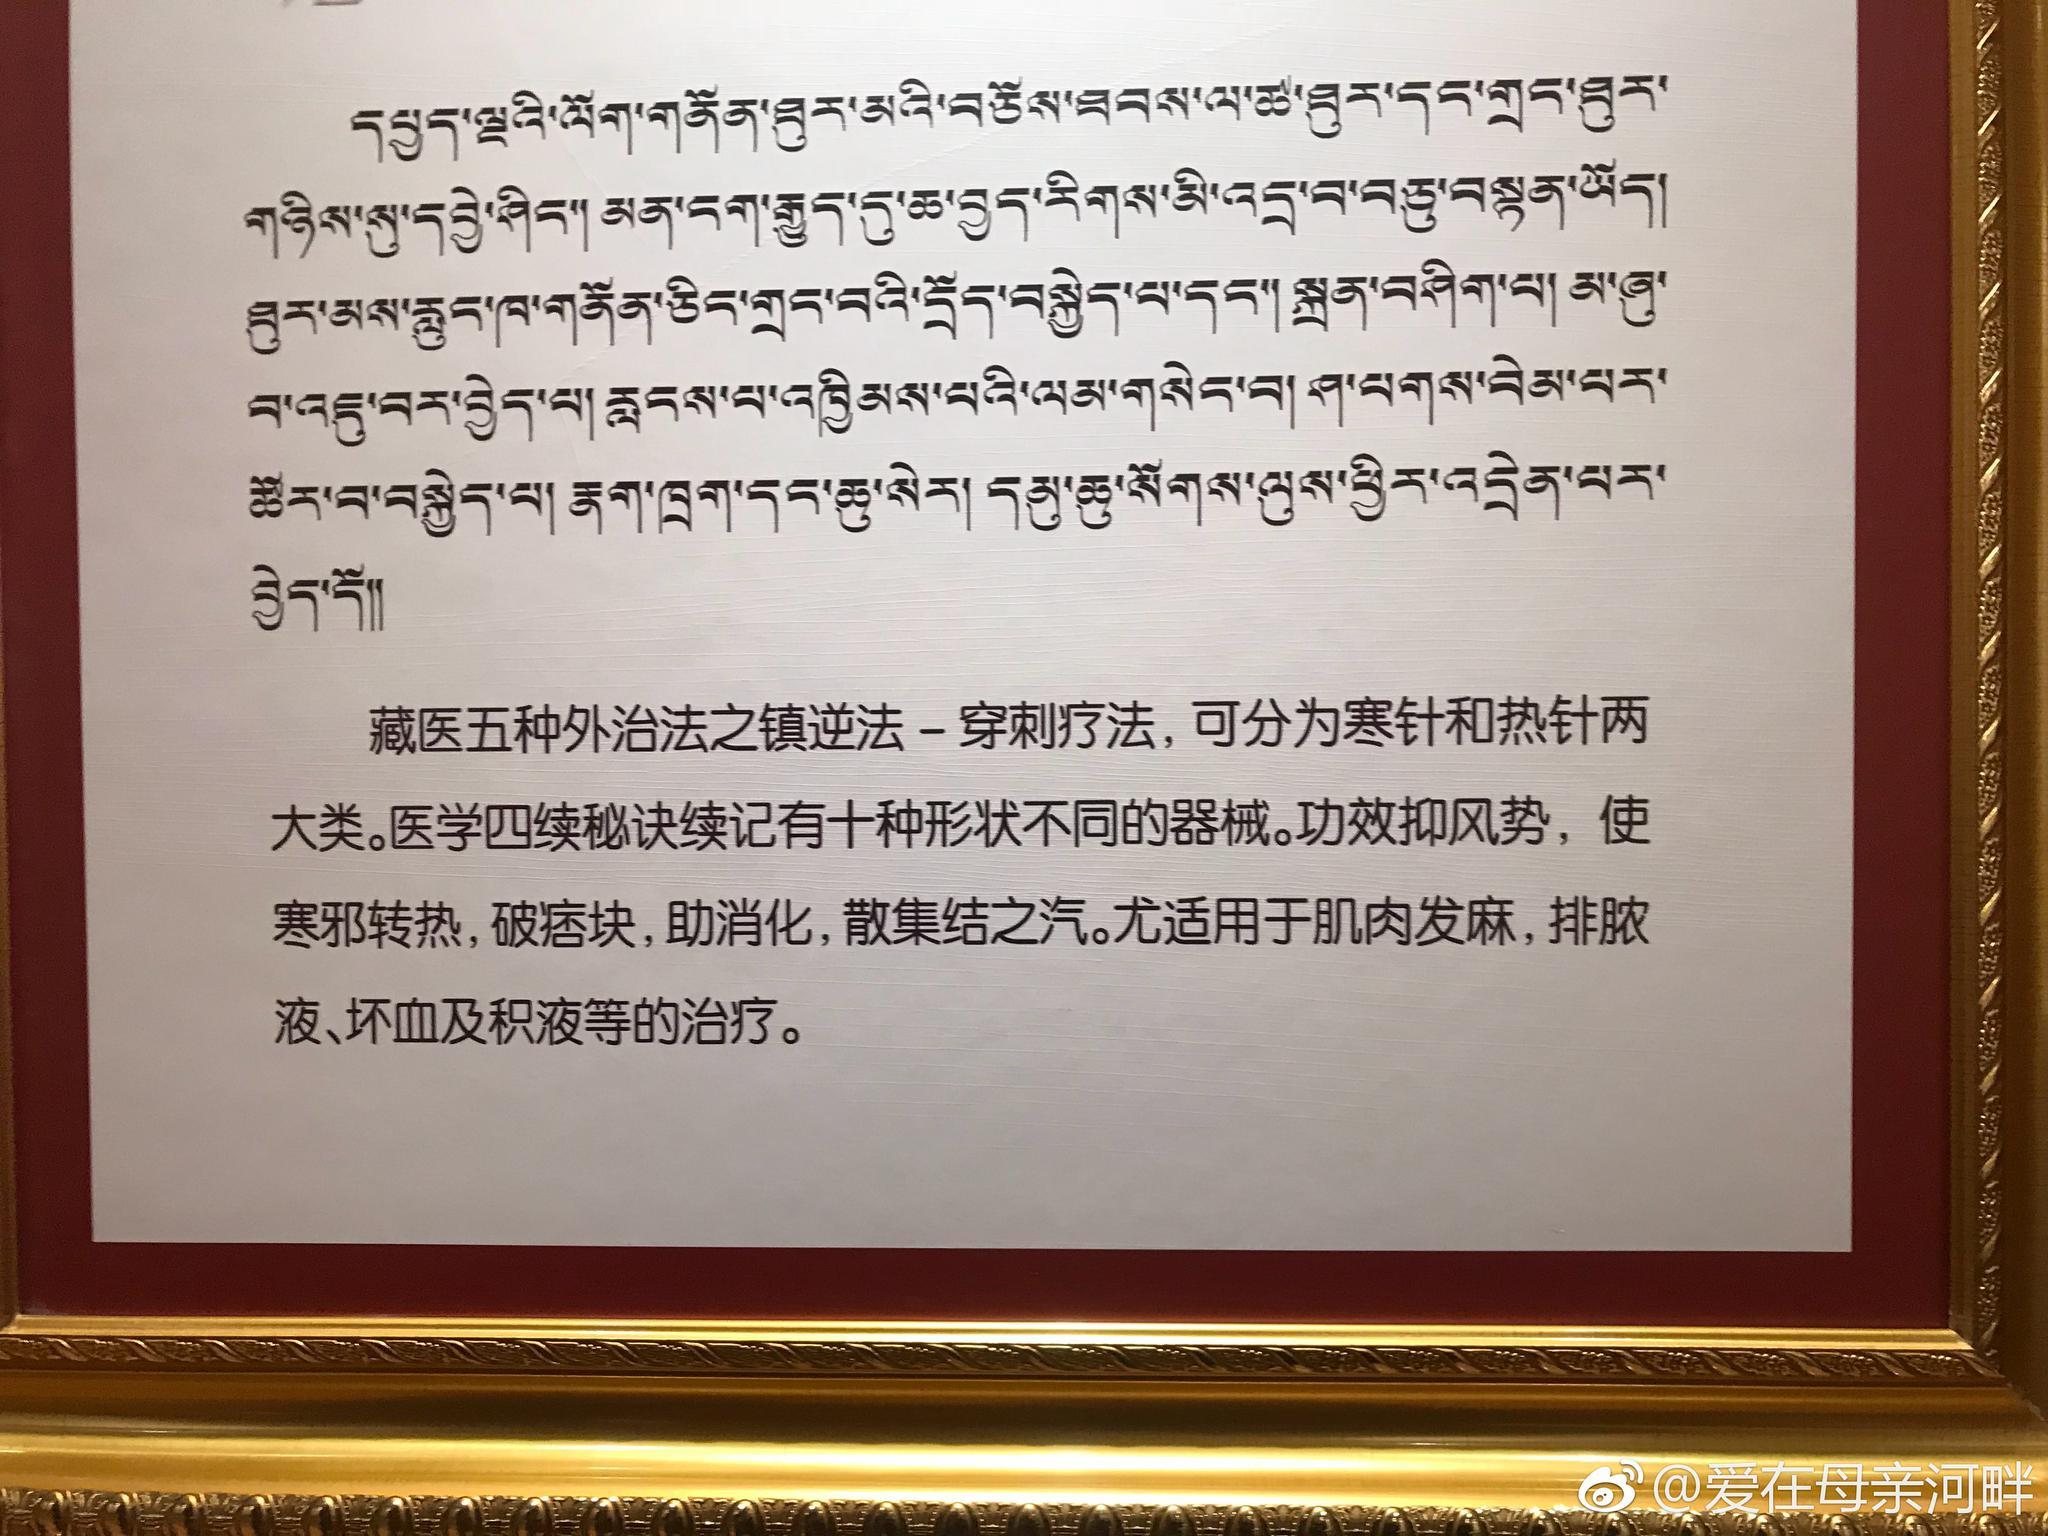 དཔྱད་ལྔའི་ལོག་གནོན་ཐུར་མའི་བཅོས་ཐབས་ལ་ཚ་ཐུར་དང་གྲང་ཐུར་
གཉིས་སུ་དབྱེ་ཤིང་། མན་ངག་རྒྱུད་དུ་ཆ་བྱད་རིགས་མི་འདྲ་བ་བཅུ་བསྟན་ཡོད།
ཐུར་མས་རླུང་ཁ་གནོན་ཅིང་གྲང་བའི་དྲོད་བསྐྱེད་པ་དང་། སྐྲན་བཤིག་པ། མ་ཞུ་
བ་འཇུ་བར་བྱེད་པ། རླངས་པ་འཁྱིམས་པའི་ལམ་གསེང་བ། ཤ་པགས་བེམ་པར་
ཚོར་བ་བསྐྱེད་པ། རྣག་ཁྲག་དང་ཆུ་སེར། དམུ་ཆུ་སོགས་ལུས་ཕྱིར་འདྲེན་པར་
བྱེད་དོ༎
藏医五种外治法之镇逆法－穿刺疗法，可分为寒针和热针两
大类。医学四续秘诀续记有十种形状不同的器械。功效抑风势，使
寒邪转热，破痞块，助消化，散集结之汽。尤适用于肌肉发麻，排脓
液、坏血及积液等的治疗。
@爱在母亲河畔